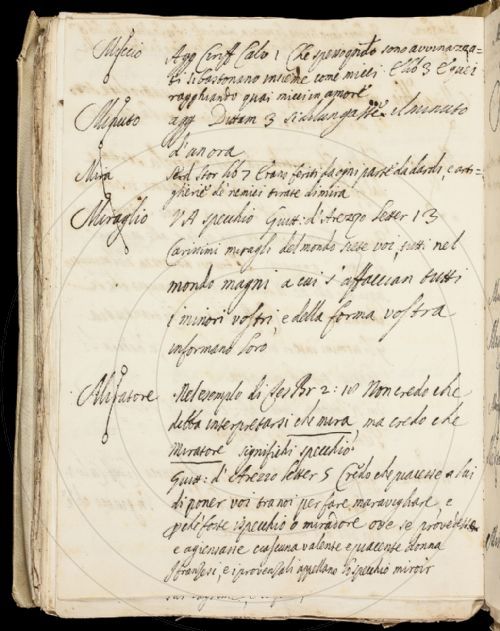 Miccio Agg Ciriff Calv 1 Che sono avvinazza-
ti si bastonano insieme come micci E lib 3 E
ragghiando quai micci in amore
Minuto agg Dittam 3 il minuto
d'un ora
Mira Stor lib 7 Eran feriti da ogni parte da dardi, e arti-
glierie de nemici tirate di mira
Miraglio V A specchio Guitt: d'Arezzo letter 1 3
Carissimi miragli del mondo siete voi, tutti nel
mondo magni a cui s'affaccian tutti
i minori vostri, e della forma vostra
informano loro
Miratore Nel esempio di Tes Br 2: 18 Non credo che
debba interpretarsi che mira, ma credo che
Miratore significhi specchio
Guitt: d'Arezzo letter 5 Credo che piacesse a lui
di poner voi tra noi per fare maravigliare, e
foste specchio o miradore ove se
e agienzasse ciascuna valente e piacente donna
I franzesi, e i provenzali appellano lo specchio miroir